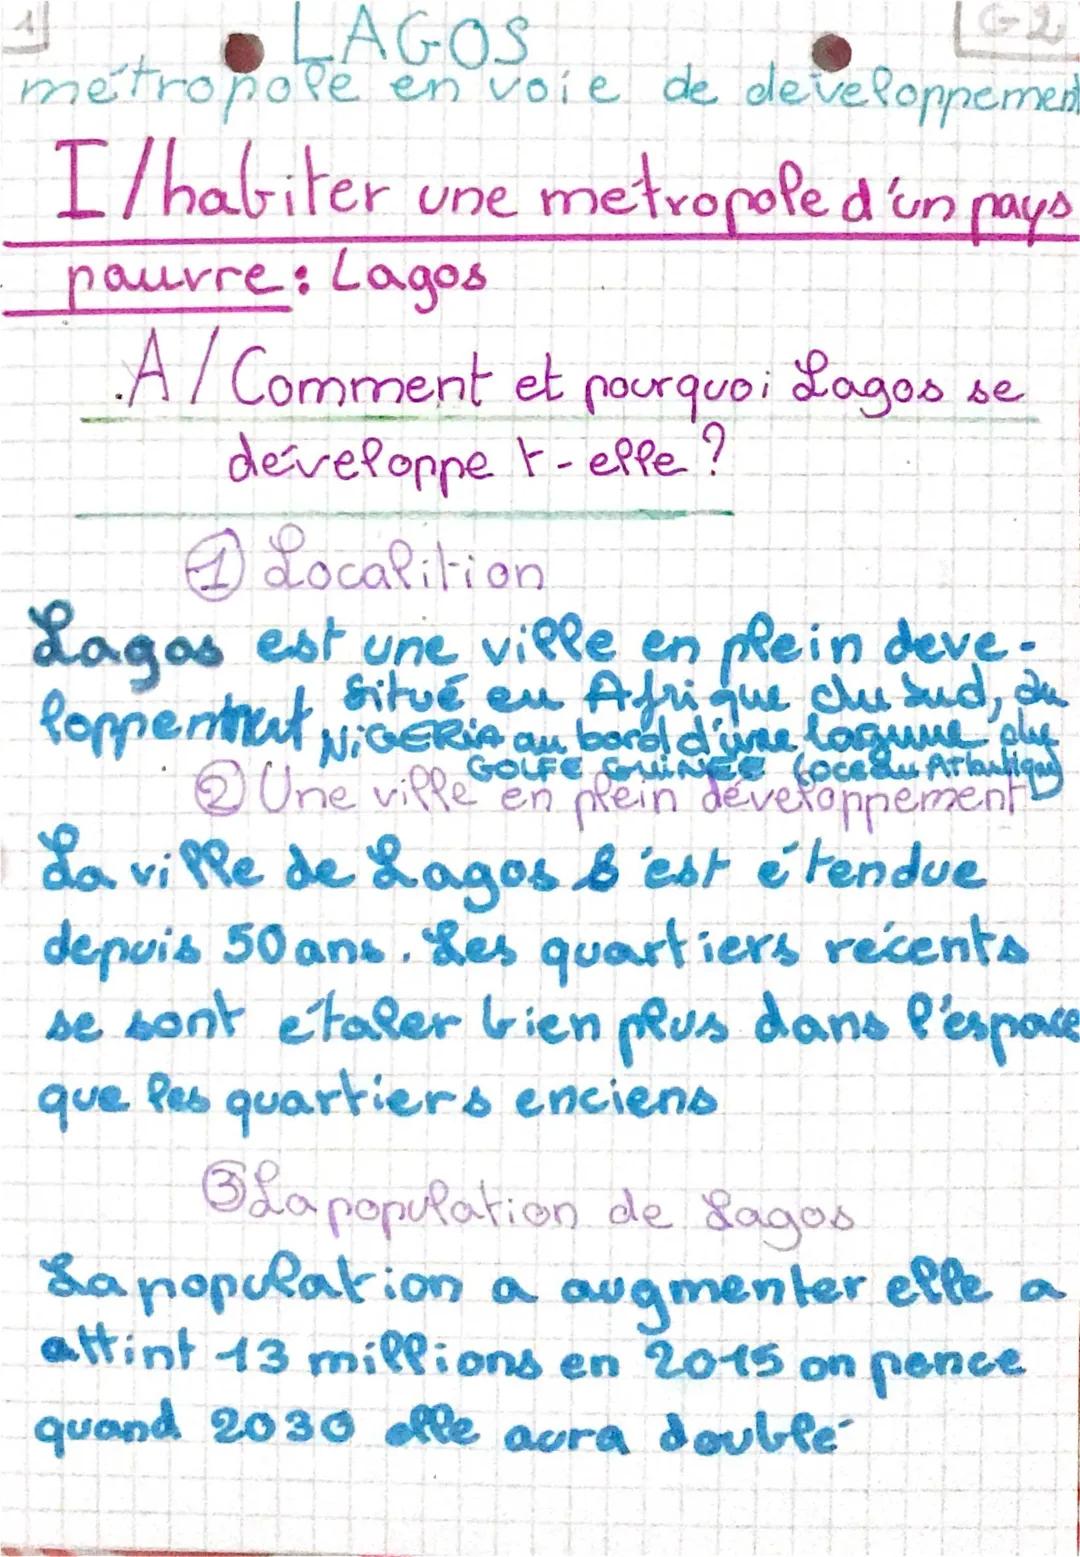 1
LAGOS
G2
métropole en voie de développement
I/habiter une métropole d'un pays
pauvre : Lagos
A/ Comment et pourquoi Lagos se
développe t-elle ?
① Localition
Lagos est une ville en plein deve-
loppement situé en Afrique du Sud, au
NIGERIA au bord d'une lagune du
GOLFE GUINEE (océan Atlantique)
② Une ville en plein développement
La ville de Lagos s'est étendue
depuis 50 ans. Les quartiers récents
se sont étaler bien plus dans l'espace
que les quartiers enciens
③ La population de Lagos
La population a augmenter elle a
attint 13 millions en 2015 on pence
quand 2030 elle aura doublé